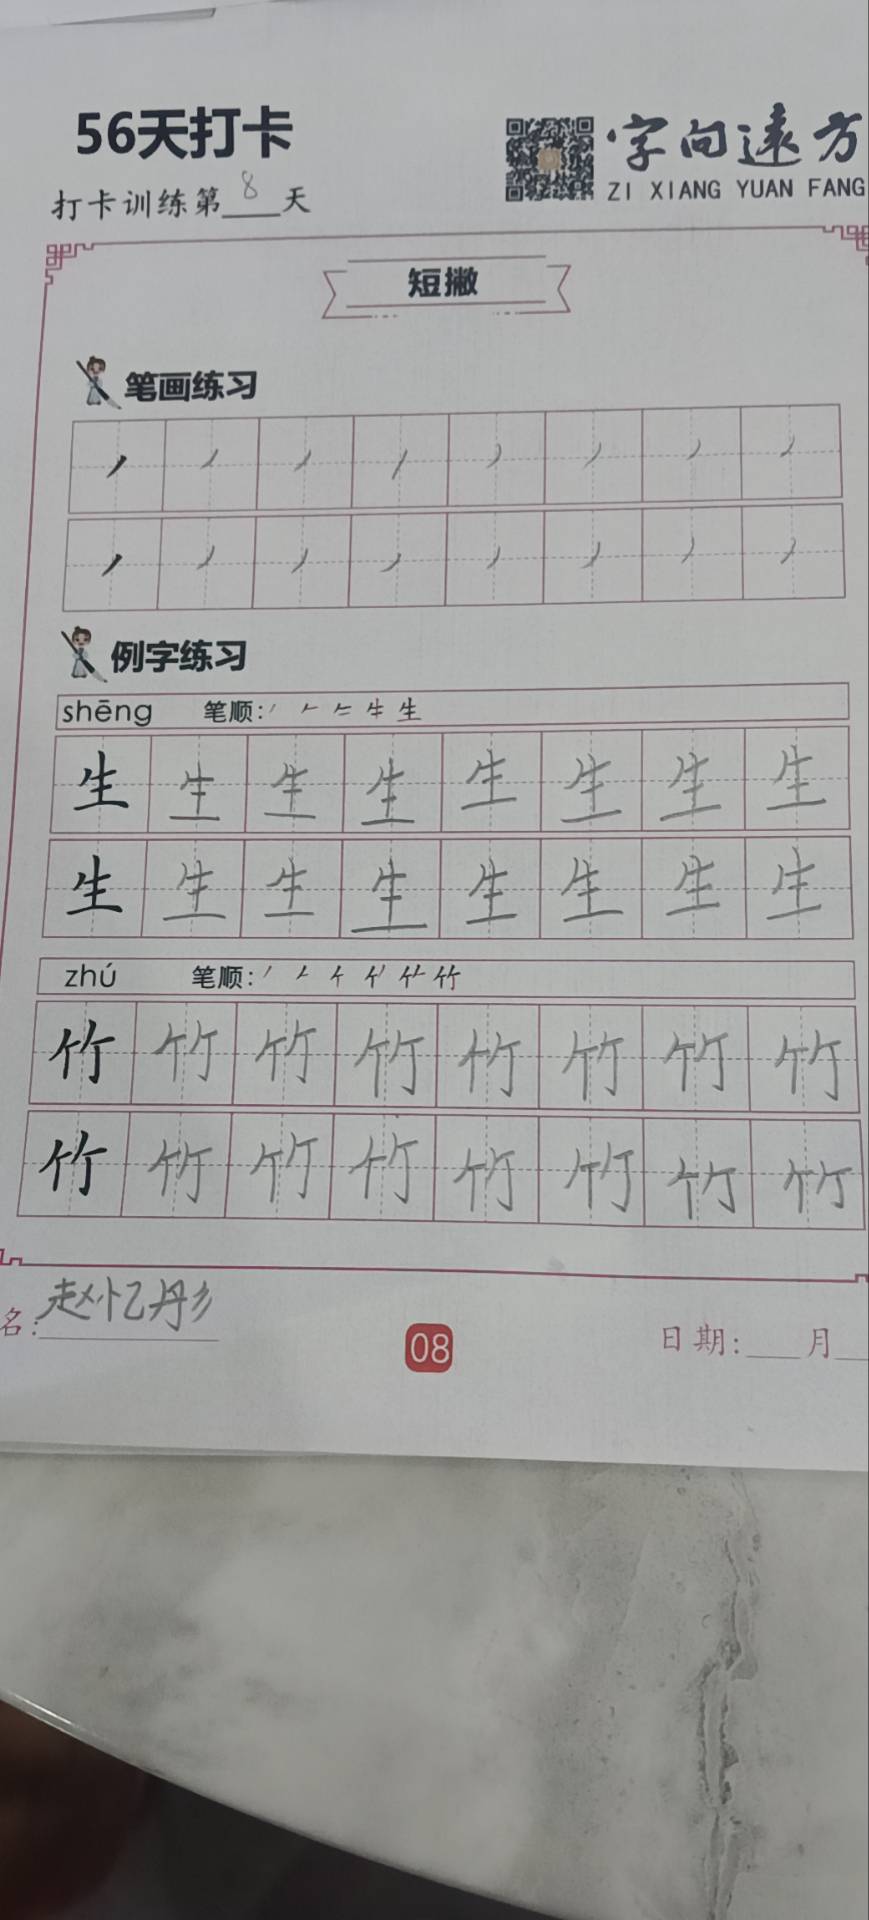 56天打卡
字向远方
ZI XIANG YUAN FANG
打卡训练第8天
短撇
笔画练习
例字练习
shēng 笔顺:
生 生 生 生 生 生 生 生
生 生 生 生 生 生 生 生
zhú 笔顺:
竹 竹 竹 竹 竹 竹 竹 竹
竹 竹 竹 竹 竹 竹 竹 竹
名:赵忆彤
08
日期:___月